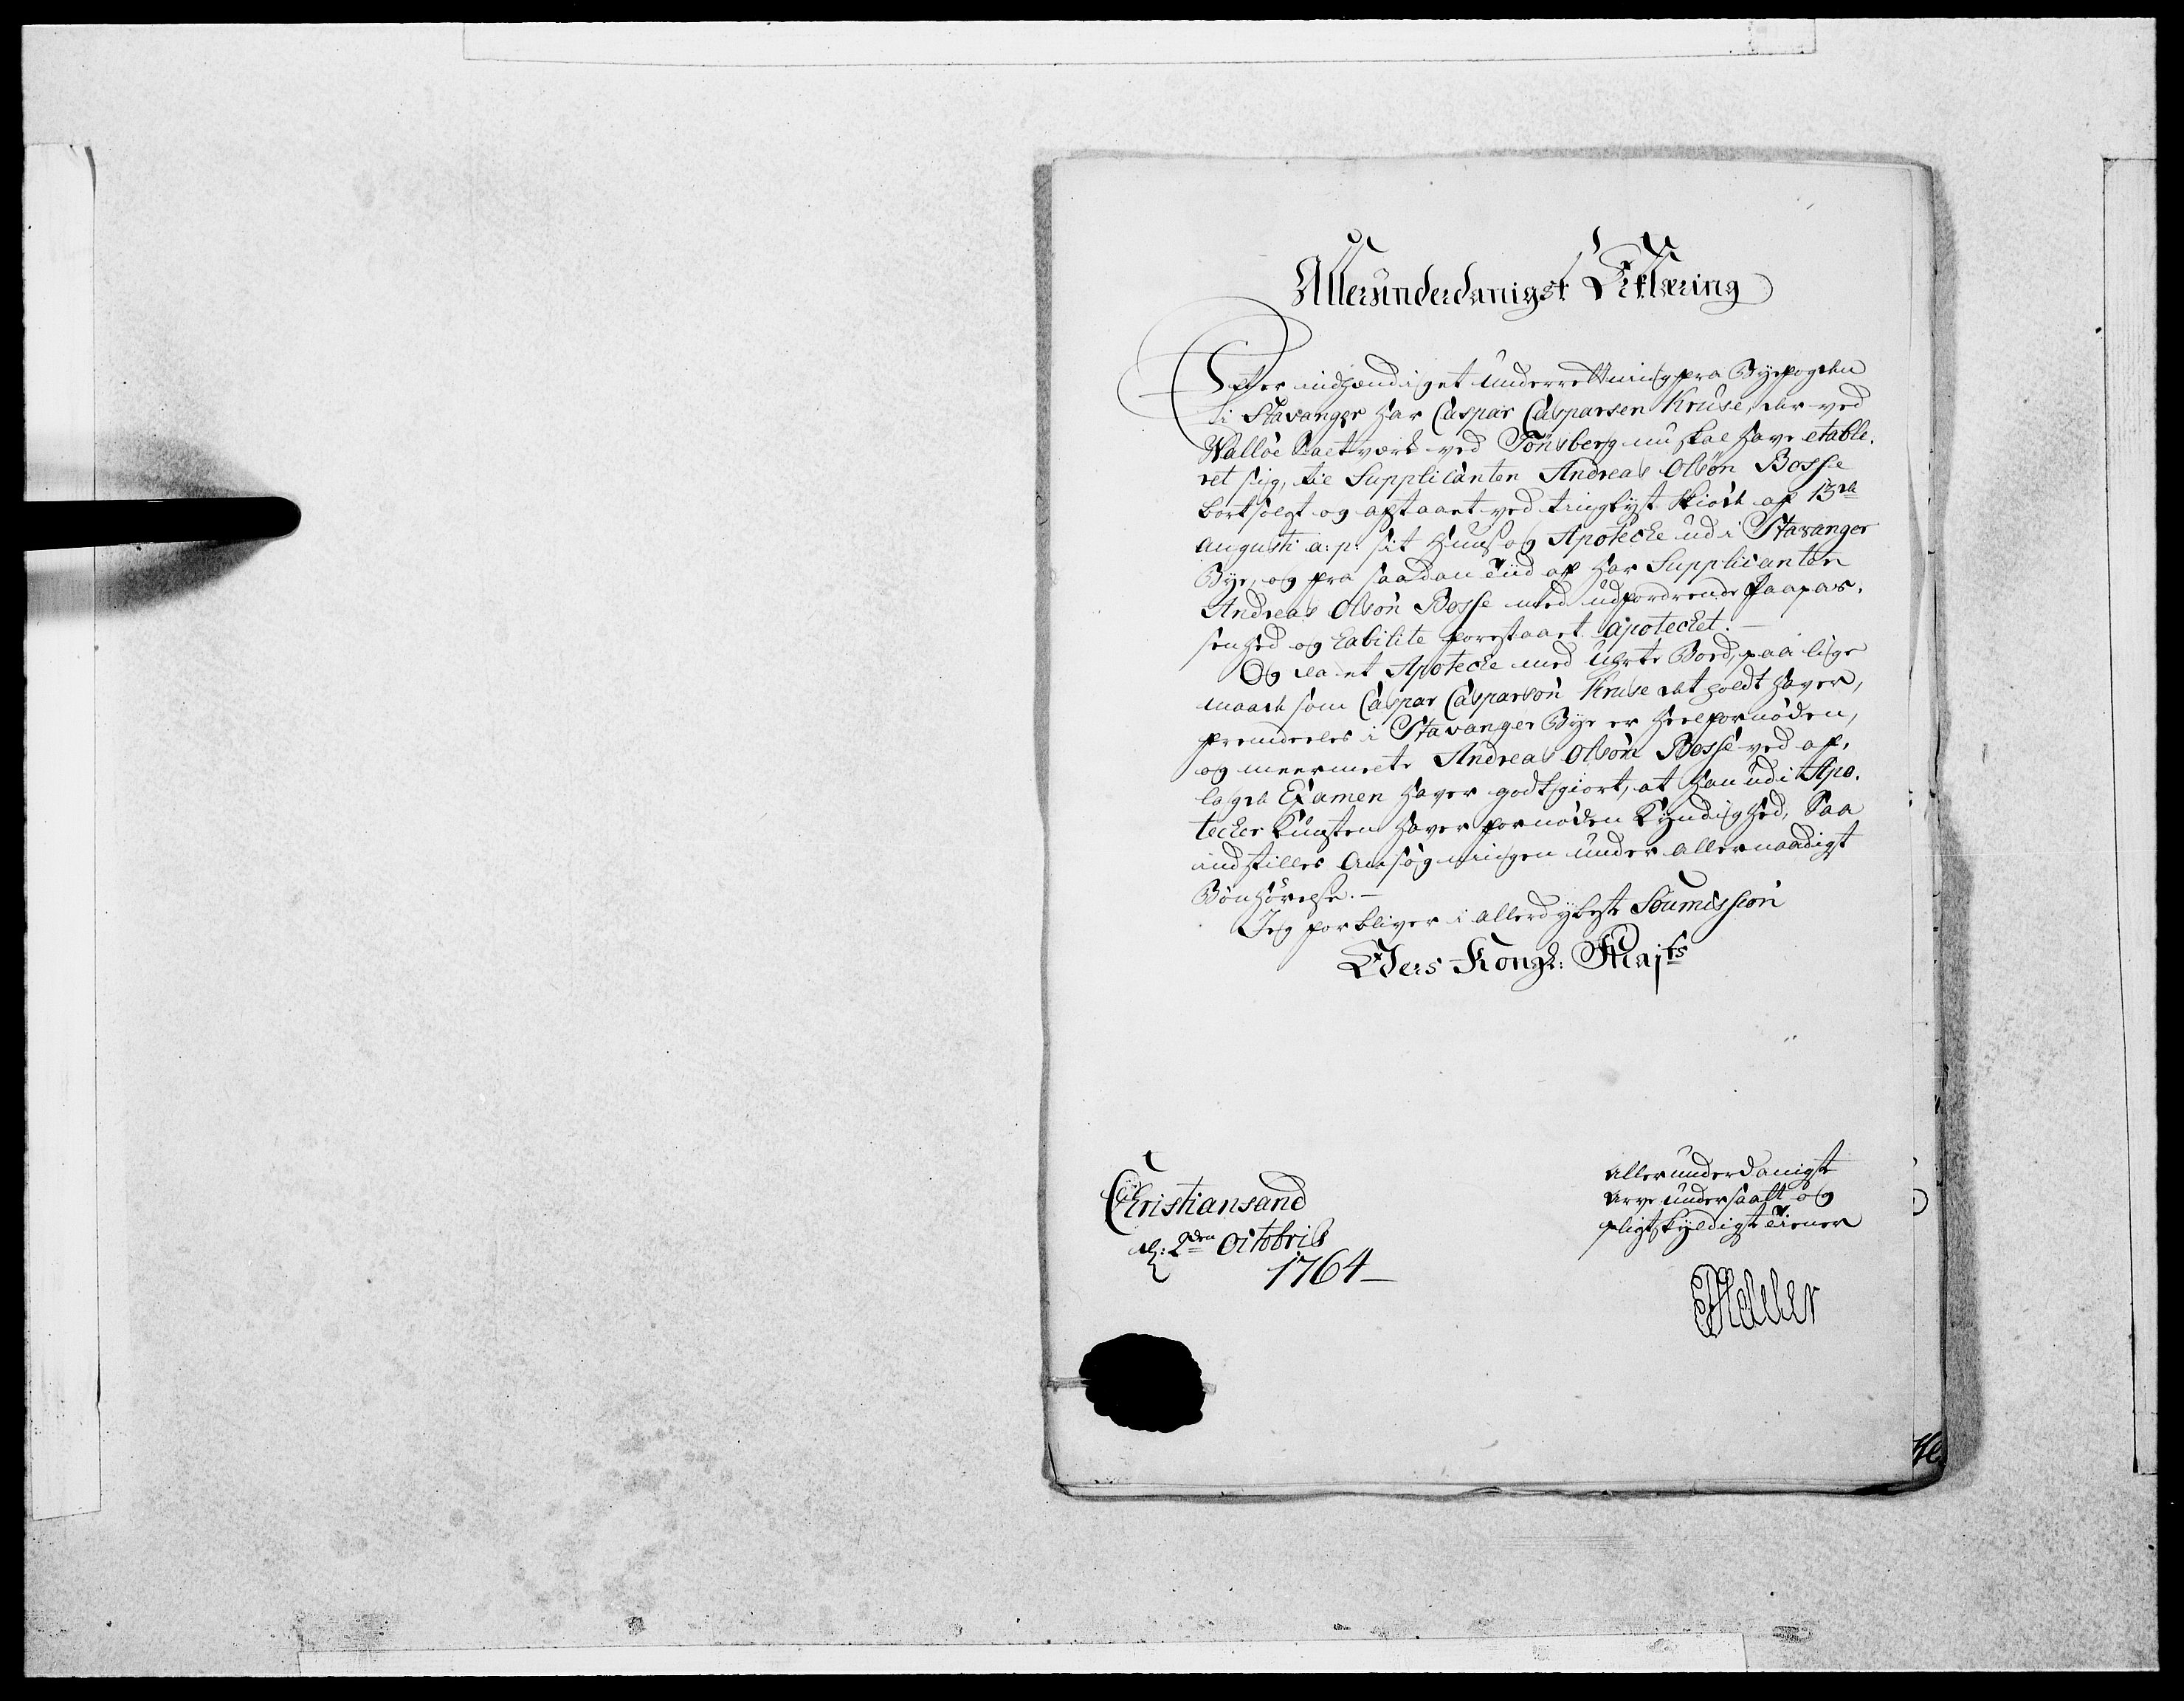 Allerunderdanigst Erklæring
Efter indhændiget Underretning fra Byefogden
i Stavanger har Caspar Casparsen Kruse, der ved
Walløe Saltværk ved Tønsberg nu skal have etable-
ret sig, til Supplicanten Andreas Olsøn Bosse
bortsolgt og afstaaet ved tinglyst Skiøde af 13de
Augusti a: p: sit Huus og Apoteche udi Stavanger
Bye, og fra saadan Tiid af har Supplicanten
Andreas Olsøn Bosse med udfordrende Paapas-
senhed og habilite forestaaet Apotechet.—
Og da et Apoteche med Urte Boed, paa lige
maade som Caspar Casparsøn Kruse det holdt haver,
fremdeeles i Stavanger Bye er heel fornøden,
og meermelte Andreas Olsøn Bosse ved af-
lagde Examen haver godtgiort, at han udi Apo-
techer Kunsten haver fornøden Kyndighed, Saa
indstilles Ansøgningen under allernaadigst
Bønhørelse.—
Jeg forbliver i allerdybeste Soumission
Eders Kongl: Majts
Christiansand
d: 2den Octobris
1764—
allerunderdanigste
Arve undersaatt og
pligtskyldigste Tiener